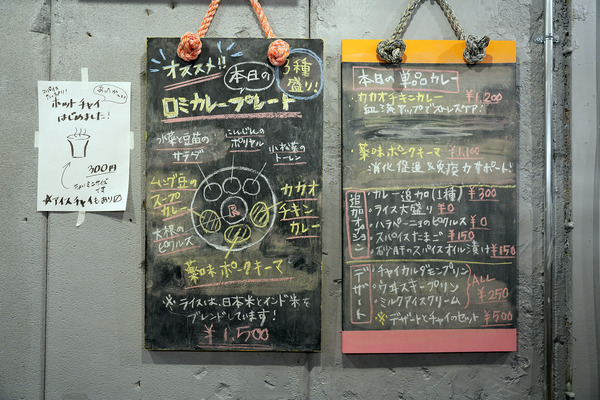 ホットチャイ
はじめました!
300円
※アイスチャイもあり
オススメ!!
本日の
3種
盛り!
ロミカレープレート
水菜と豆苗の
サラダ
にんじんの
ポリヤル
小松菜の
トーレン
ムング豆の
スープ
カレー
カカオ
チキン
カレー
大根の
ピクルス
薬味ポークキーマ
※ライスは、日本米とインド米を
ブレンドしています!
¥1,500
本日の単品カレー
・カカオチキンカレー ¥1,200
血流アップでストレスケア!
・薬味ポークキーマ ¥1,100
消化促進&免疫力サポート!
追加オプション
・カレー追加(1種) ¥300
・ライス大盛り ¥0
・ハラペーニョのピクルス ¥0
・スパイスたまご ¥150
・砂肝のスパイスオイル漬け ¥150
デザート
・チャイカルダモンプリン
・ウヰスキープリン
・ミルクアイスクリーム
ALL
¥250
※デザートとチャイのセット ¥500